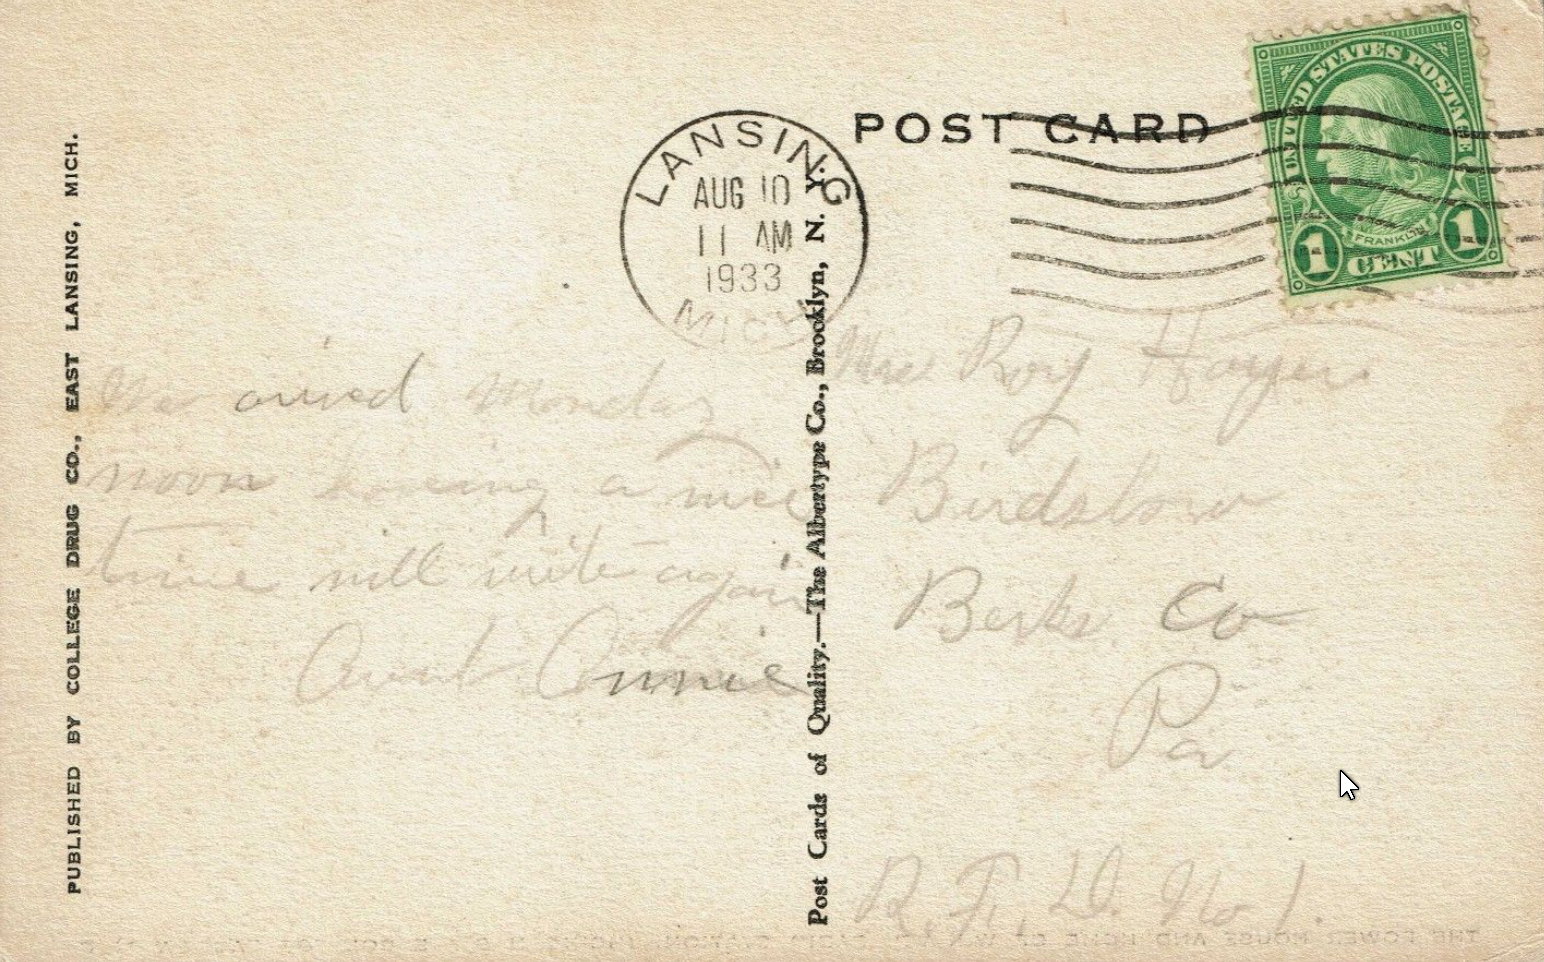 POST CARD
UNITED STATES POSTAGE
FRANKLIN
1 CENT 1
LANSING
AUG 10
11 AM
1933
MICH
PUBLISHED BY COLLEGE DRUG CO., EAST LANSING, MICH.
We arived Monday
noon haveing a nice
time will write again
Aunt Annie
Post Cards of Quality.—The Albertype Co., Brooklyn, N. Y.
Roy
Birdsboro
Berks Co
Pa
R. F. D. No 1.